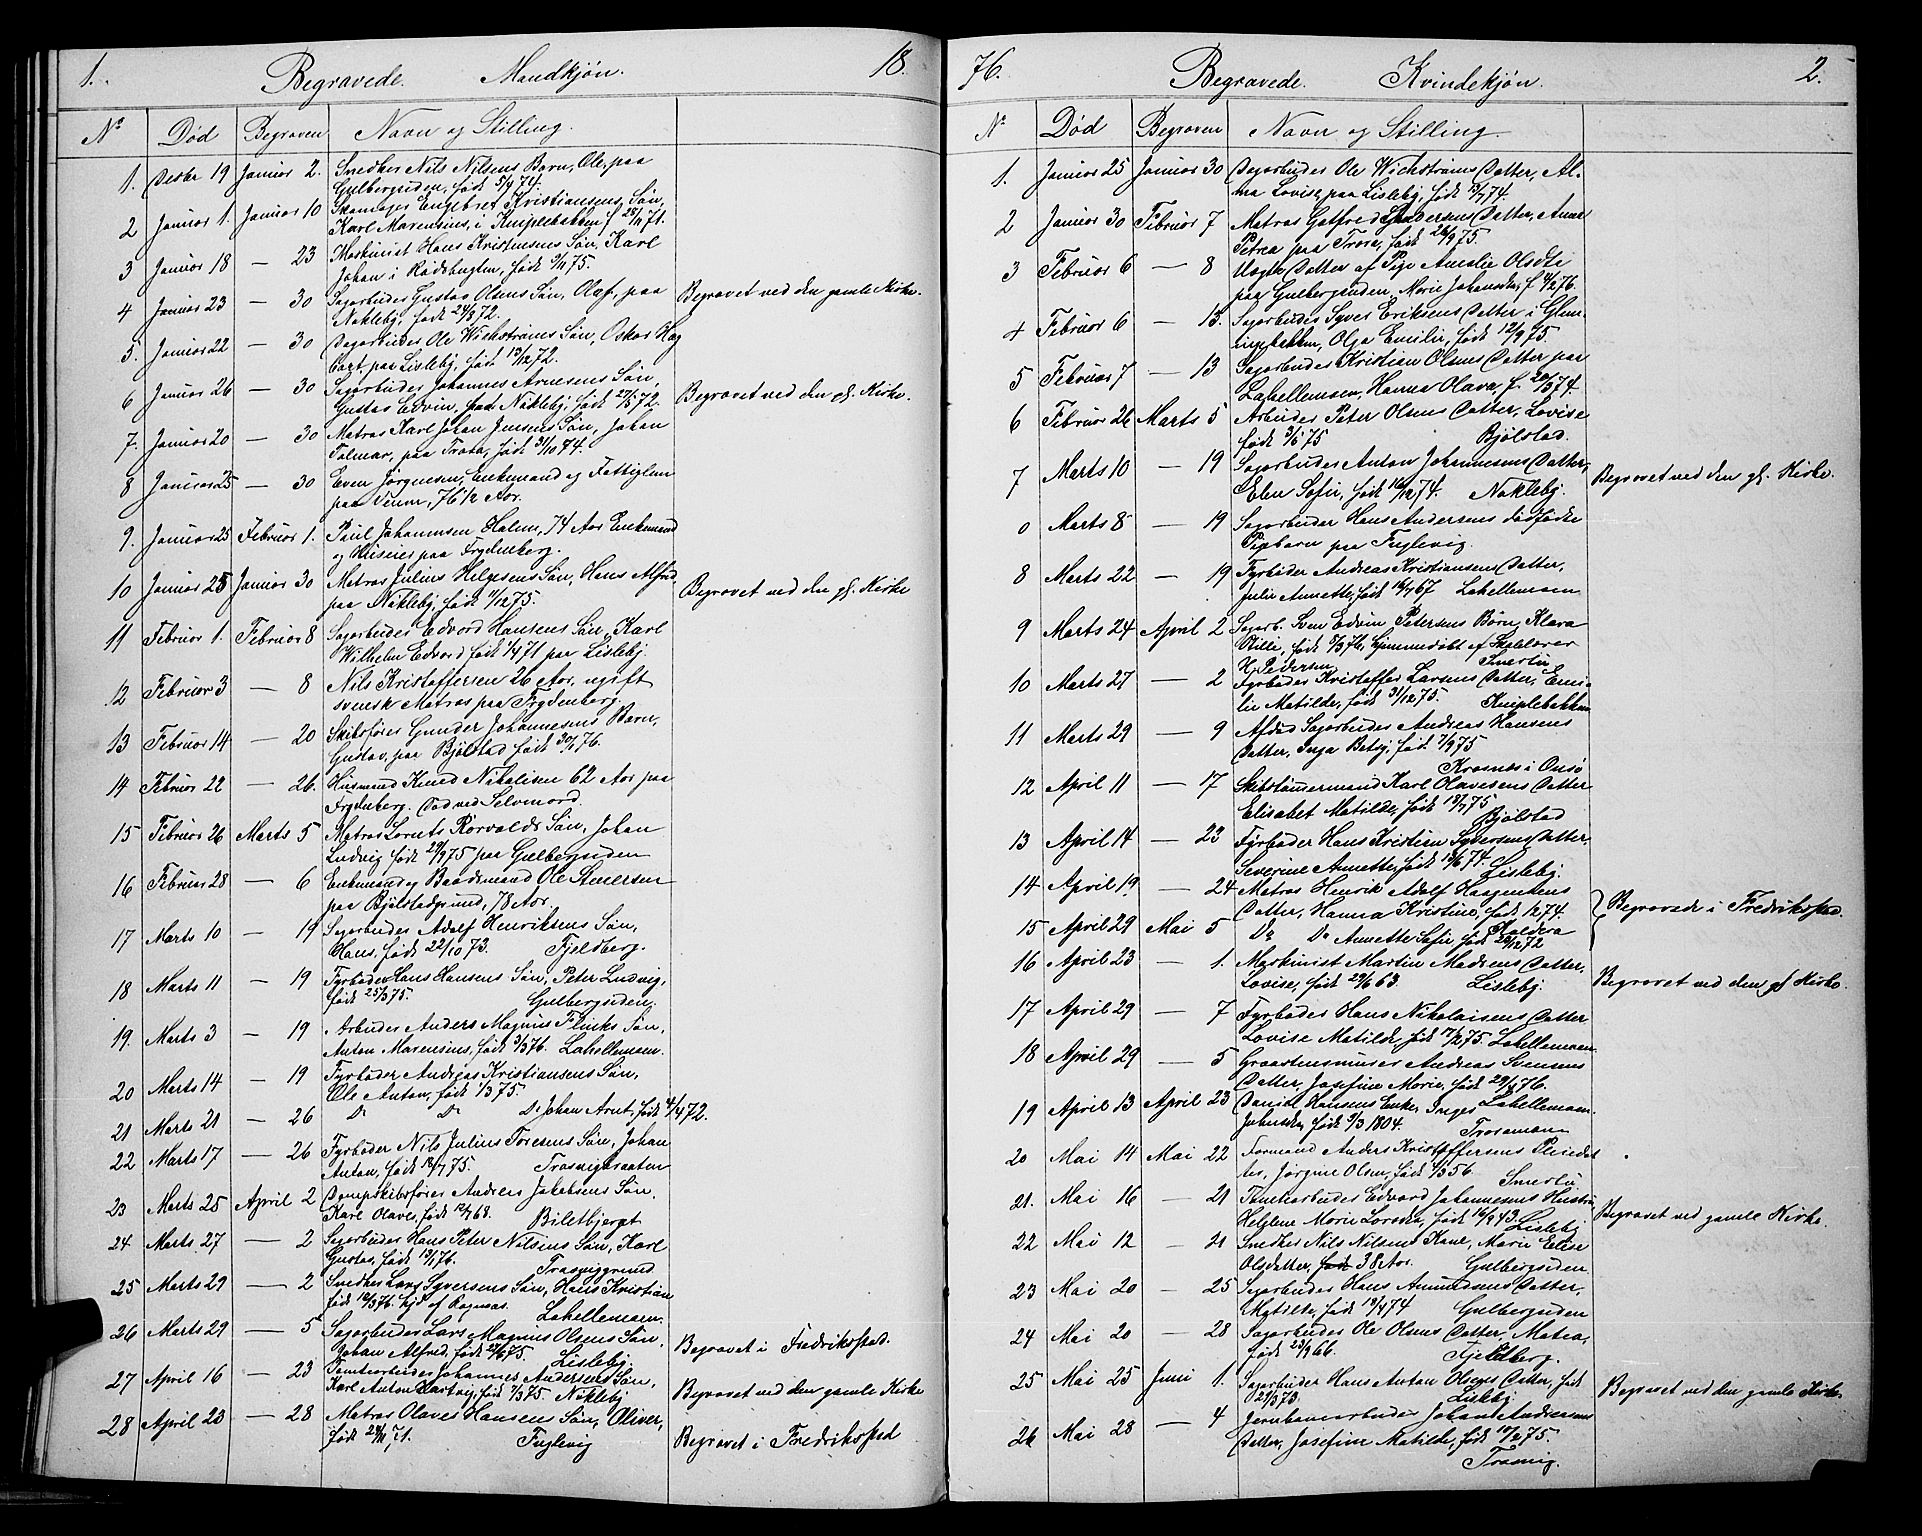 1. Begravede. Mandkjøn. 18
No Død Begraven Navn og Stilling.
1. Decbr 19 Januar 2. Snedker Nils Nilsens Barn, Ole, paa
Gulbergsiden, født 5/9 74.
2 Januar 1. Januar 10 Skomager Engebret Kristiansens Søn,
Karl Marensius, i Kniplebakken f. 25/11 71.
3 Januar 18 — 23 Maskinist Hans Kristiansens Søn, Karl
Johan i Rødsbugten, født 9/11 75.
4 Januar 23 — 30 Sagarbeider Gustav Olsens Søn, Olaf, paa Begravet ved den gamle Kirke.
Nøkleby, født 24/8 72.
5. Januar 22 — 30 Sagarbeider Ole Wichstrøms Søn, Oskar Hag
bart, paa Lisleby, født 13/12 72.
6 Januar 26 — 30 Sagarbeider Johannes Arnesens Søn, Begravet ved den gl. Kirke.
Gustav Edvin, Nøkleby, født 27/5 72.
7. Januar 20 — 30 Matros Karl Johan Jensens Søn, Johan
Falmar, paa Trara, født 31/10 74.
8 Januar 25 — 30 Even Jørgensen, Enkemand og Fattiglem
paa Veum, 76 1/2 Aar.
9. Januar 25 Februar 1. Paul Johannesen Holm, 74 Aar Enkemand
og Huseier paa Frydenberg.
10 Januar 25 Januar 30 Matros Julius Helgesens Søn, Hans Alfred, Begravet ved den gl. Kirke
paa Nøkleby, født 11/12 75.
11 Februar 1. Februar 8 Sagarbeider Edvard Hansens Søn, Karl
Wilhelm Edvard født 1/4 71 paa Lisleby.
12 Februar 3 — 8 Nils Kristoffersen 26 Aar, ugift
svensk Matros paa Frydenberg.
13 Februar 14 — 20 Skibsfører Gunder Johannesens Barn,
Gustav, paa Bjølstad født 30/1 76.
14 Februar 22 — 26. Husmand Knud Nikolisen 62 Aar paa
Frydenberg. Død ved Selvmord.
15 Februar 26 Marts 5 Matros Lorents Rørvalds Søn, Johan
Ludvig født 29/9 75 paa Gulbergsiden
16 Februar 28 — 6 Enkemand og Baadsmand Ole Steversen
paa Bjølstadgrund, 78 Aar.
17 Marts 10 — 19 Sagarbeider Adolf Henriksens Søn,
Hans, født 22/10 73. Fjeldberg.
18 Marts 11 — 19 Fyrbøder Lars Hansens Søn, Peter Ludvig,
født 25/3 75. Gulbergsiden.
19. Marts 3 — 19 Arbeider Anders Magnus Flinks Søn,
Anton Marensius, født 3/3 76. Lahellemoen.
20 Marts 14 — 19 Fyrbøder Andreas Kristiansens Søn,
Ole Anton, født 1/3 75.
21 Marts 21 — 26 Do Do Do Johan Arnt, født 4/4 72.
22 Marts 17 — 26 Fyrbøder Nils Julius Toresens Søn, Johan
Anton, født 18/7 75. Trosvigkraaten
23 Marts 25 April 2 Dampskibsfører Andreas Jakobsens Søn,
Karl Olaves, født 12/7 68. Biletbjerget
24 Marts 27 — 2 Sagarbeider Hans Peter Nilsens Søn, Karl
Gustav, født 13/1 76. Trosviggrund
25 Marts 29 — 2 Snedker Lars Syversens Søn, Hans Kristian
født 12/3 76. hjd af Lahellemoen.
26 Marts 29 — 5 Sagarbeider Lars Magnus Olsens Søn, Begravet i Fredriksstad.
Johan Alfred, født 27/6 75. Lisleby.
27 April 16 — 23 Tømtearbeider Johannes Andersens Søn,
Karl Anton Hartvig, født 7/3 75 Nøkleby Begravet ved den gamle Kirke
28 April 23 — 28 Matros Olaves Hansens Søn, Oliver,
født 29/11 71. Fuglevig Begravet i Fredriksstad
76. Begravede. Kvindekjøn. 2.
No Død Begraven Navn og Stilling.
1. Januar 25 Januar 30 Sagarbeider Ole Wichstrøms Datter, Al-
ma Lovise, paa Lisleby, født 13/7 74.
2 Januar 30 Februar 7 Matros Gotfred Andersens Datter, Anne
Petrea paa Trara, født 26/9 75.
3 Februar 6 — 8 Uægte Datter af Pige Amalie Olsdtr
paa Gulbergsiden, Marie Johanette, f. 4/2 76.
4 Februar 6 — 13. Sagarbeider Syver Eriksens Datter i Glem-
ingebakken, Olga Emilie, født 12/9 75.
5 Februar 7 — 13 Sagarbeider Kristian Olsens Datter paa
Lahellemoen, Hanna Olava, f. 20/5 74.
6 Februar 26 Marts 5 Arbeider Peter Olsens Datter, Lovise
født 3/6 75 Bjølstad.
7 Marts 10 — 19 Sagarbeider Anton Johannesens Datter,
Elen Sofie, født 16/12 74. Nøkleby. Begravet ved den gl. Kirke.
0 Marts 8 — 19 Sagarbeider Hans Andersens dødfødte
Pigebarn paa Fuglevig.
8 Marts 22 — 19 Fyrbøder Andreas Kristiansens Datter,
Julie Annette, født 16/7 67 Lahellemoen
9 Marts 24 April 2 Sagarb. Sven Edvin Petersens Børn, Klara
Otilie, født 7/3 76, hjemmedøbt af Skolelærer
H. Pedersen. Smertu.
10 Marts 27 — 2 Fyrbøder Kristoffer Larsens Datter, Emi-
lie Matilde, født 31/12 75. Kniplebakken
11 Marts 29 — 9 Afdød Sagarbeider Andreas Hansens
Datter, Inga Betsy, født 7/9 75
Krosnes i Onsø
12 April 11 — 17 Skibstømmermand Karl Olavesens Datter
Elisabet Matilde, født 18/7 75
Bjølstad
13 April 14 — 23 Fyrbøder Hans Kristian Syversens Datter,
Severine Annette, født 13/6 74. Lisleby.
14 April 19 — 24 Matros Henrik Adolf Haagensens
Datter, Hanna Kristine, født 1274. Begravede i Fredriksstad.
15 April 29 Mai 5 Do Do Annette Sofie, født 25/12 72
16 April 23 — 1. Maskinist Martin Madsens Datter,
Lovise, født 29/6 63. Lisleby. Begravet ved den gl Kirke.
17 April 29 — 7 Fyrbøder Hans Nikolaisens Datter
Lovise Matilde, født 17/12 75. Lahellemoen
18 April 29 — 5 Graastensmurer Andreas Svensens
Datter, Josefine Marie, født 29/1 76.
19 April 13 April 23 Daniel Hansens Enke, Inger Lahellemoen.
født 9/3 1804. Trosemoen
20 Mai 14 Mai 22 Formand Anders Kristoffersens Pleiedat
ter, Jørgine Olsen, født 1/3 56. Smertu.
21. Mai 16 — 21 Edvard Johannesens Hustru
Helene Marie født 16/9 43. Lisleby Begravet ved gamle Kirke.
22 Mai 12 — 21 Snedker Nils Nilsens Kone, Marie Elise
Olsdatter, 38 Aar. Gulbergsiden
23 Mai 20 — 25 Sagarbeider Hans Amundsens Datter,
Matilde, født 19/4 74 Gulbergsiden
24 Mai 20 — 28 Sagarbeider Ole Olsens Datter, Matea,
født 23/9 66. Fjeldberg.
25 Mai 25 Juni 1. Sagarbeider Hans Anton Olsens Datter, født
21/3 73. Lisleby Begravet ved den gamle Kirke.
26 Mai 28 — 4 Jernbanearbeider Johan Andersens
Datter, Josefine Matilde, født 10/2 75.
Trosvig.